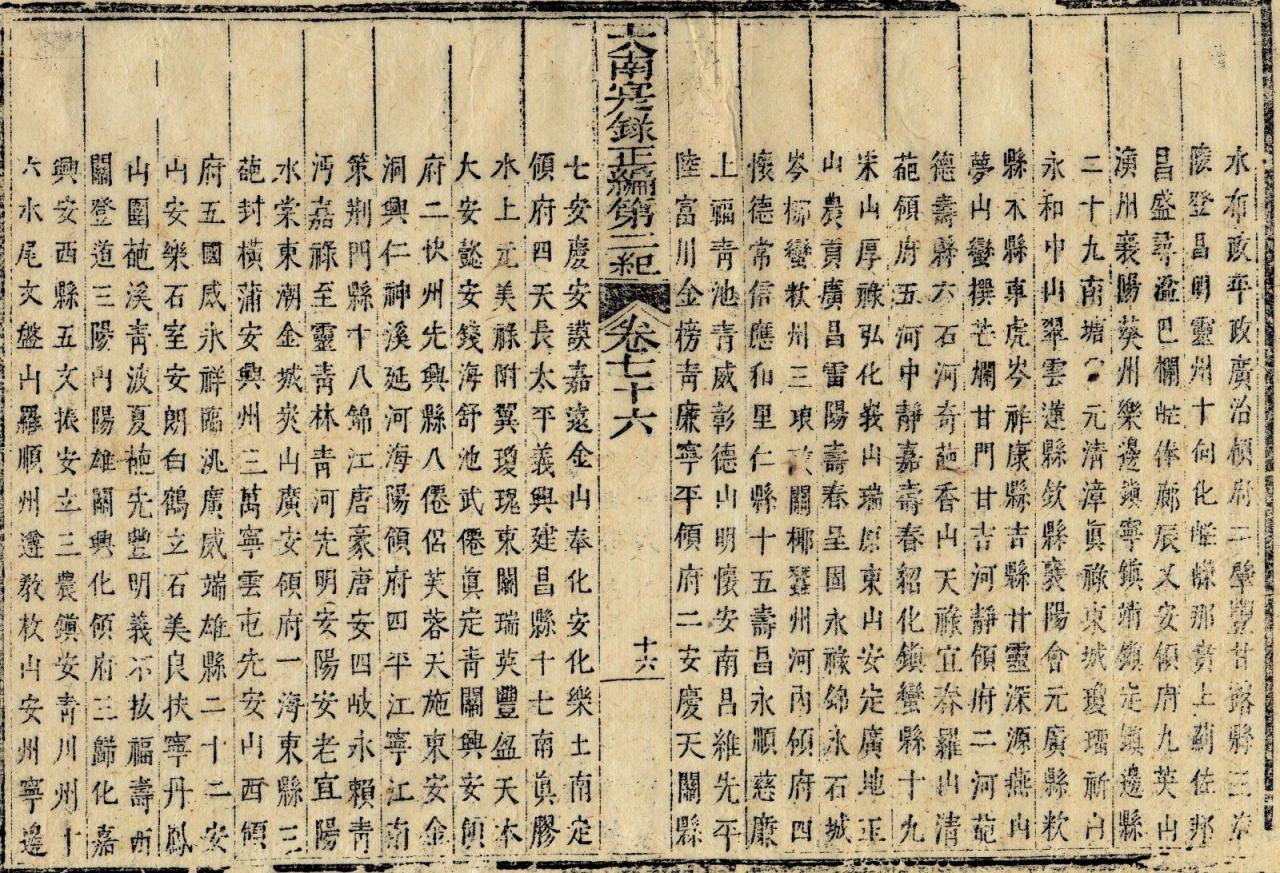 水布政平政廣治領府二肇豐甘露縣三海
陵登昌明靈州十向化眭㠓那賁上蓟佐那
昌盛尋盈巴欄眭俸廊辰乂安領府九英山
演州襄陽葵州樂邊鎮寧鎮靖鎮定鎮邊縣
二十九南塘元清漳眞祿東城瓊瑠新白
永和中山翠雲蓮縣欽縣襄陽會元廣縣欵
縣木縣車虎岑祥康縣吉縣甘靈深源燕山
夢山蠻撰芒欄甘門甘吉河靜領府二河葩
德壽縣六石河奇葩香山天祿宜春羅山清
葩領府五河中靜嘉壽春紹化鎮蠻縣十九
宋山厚祿弘化峩山瑞原東山安定廣地玉
山農貢廣昌雷陽壽春呈固永祿錦水石城
岑椰蠻欵州三琅政關椰蠶州河內領府四
懷德常信應和里仁縣十五壽昌永順慈廉
上福靑池靑威彰德山明懷安南昌維先平
陸富川金榜靑廉寧平領府二安慶天關縣
大南寔錄正編第二紀 卷七十六 十六
七安慶安謨嘉遠金山奉化安化樂土南定
領府四天長太平義興建昌縣十七南眞膠
水上元美祿附翼瓊瑰東關瑞英豐盈天本
大安懿安錢海舒池武僊眞定靑關興安領
府二快州先興縣八僊侶芙蓉天施東安金
洞興仁神溪延河海陽領府四平江寧江南
策荆門縣十八錦江唐豪唐安四岐永賴靑
沔嘉祿至靈靑林靑河先明安陽安老宜陽
水棠東潮金城炎山廣安領府一海東縣三
葩封橫蒲安興州三萬寧雲屯先安山西領
府五國威永祥臨洮廣威端雄縣二十二安
山安樂石室安朗白鶴立石美良扶寧丹鳳
山圍葩溪靑波夏葩先豐明義不拔福壽西
關登道三陽內陽雄關興化領府三歸化嘉
興安西縣五文振安立三農鎮安靑川州十
六水尾文盤山羅順州遵教枚山安州寧邊